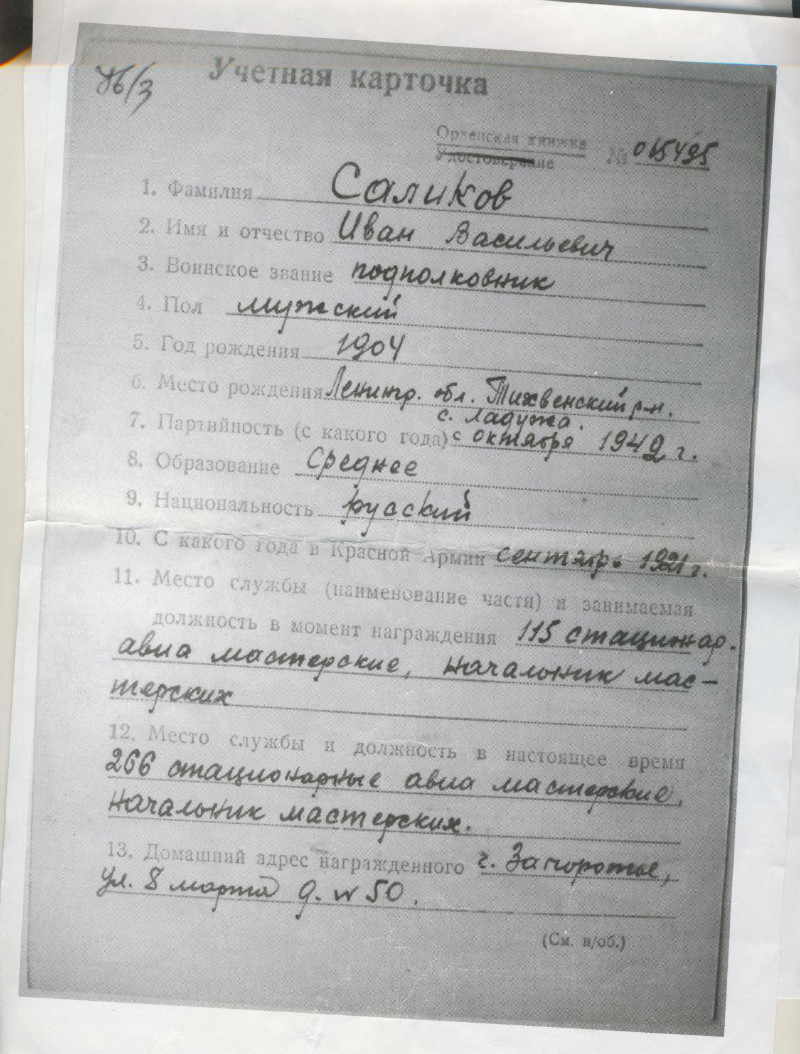 Учетная карточка
Орденская книжка
Удостоверение № 015495
1. Фамилия Саликов
2. Имя и отчество Иван Васильевич
3. Воинское звание подполковник
4. Пол мужский
5. Год рождения 1904
6. Место рождения Ленингр. обл. Тихвенский р-н.
с. Ладужа.
7. Партийность (с какого года) с октября 1942 г.
8. Образование Среднее
9. Национальность русский
10. С какого года в Красной Армии сентябрь 1921 г.
11. Место службы (наименование части) и занимаемая
должность в момент награждения 115 стационар.
авиа мастерские, начальник мас-
терских
12. Место службы и должность в настоящее время
266 стационарные авиа мастерские,
начальник мастерских.
13. Домашний адрес награжденного г. Запорожье,
ул. 8 марта д. № 50.
(См. н/об.)